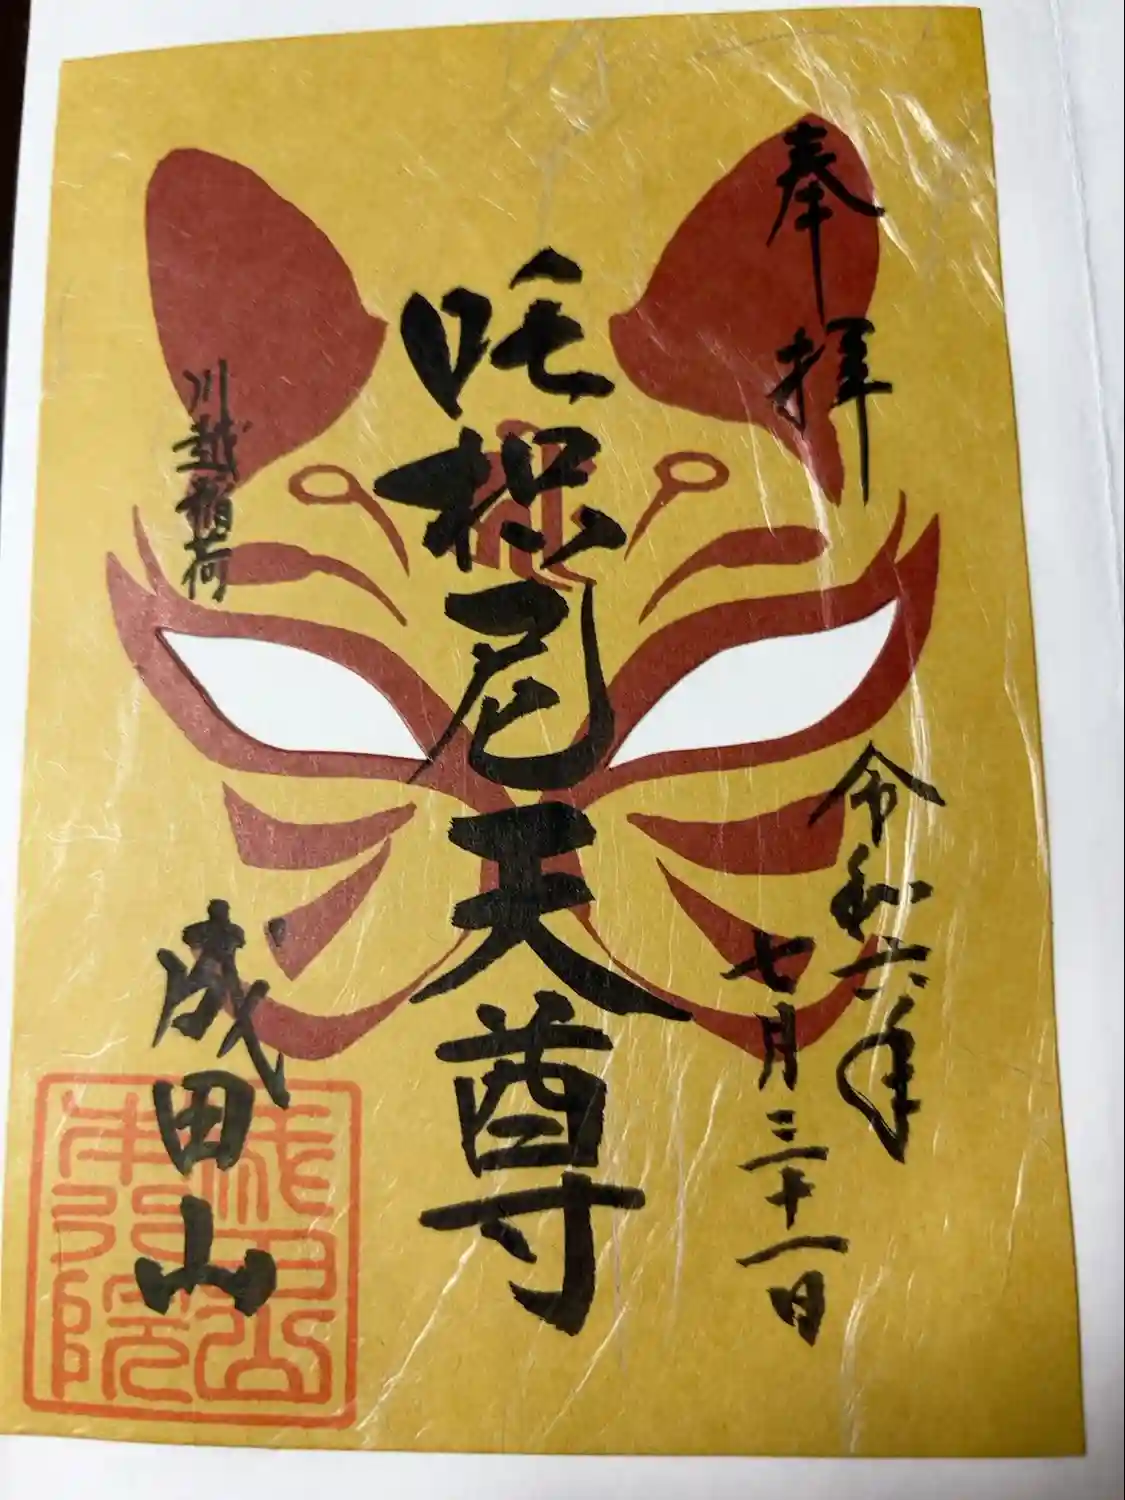 奉拝
令和六年
七月三十一日
吒枳尼天尊
川越稲荷
成田山
成田山
本行院